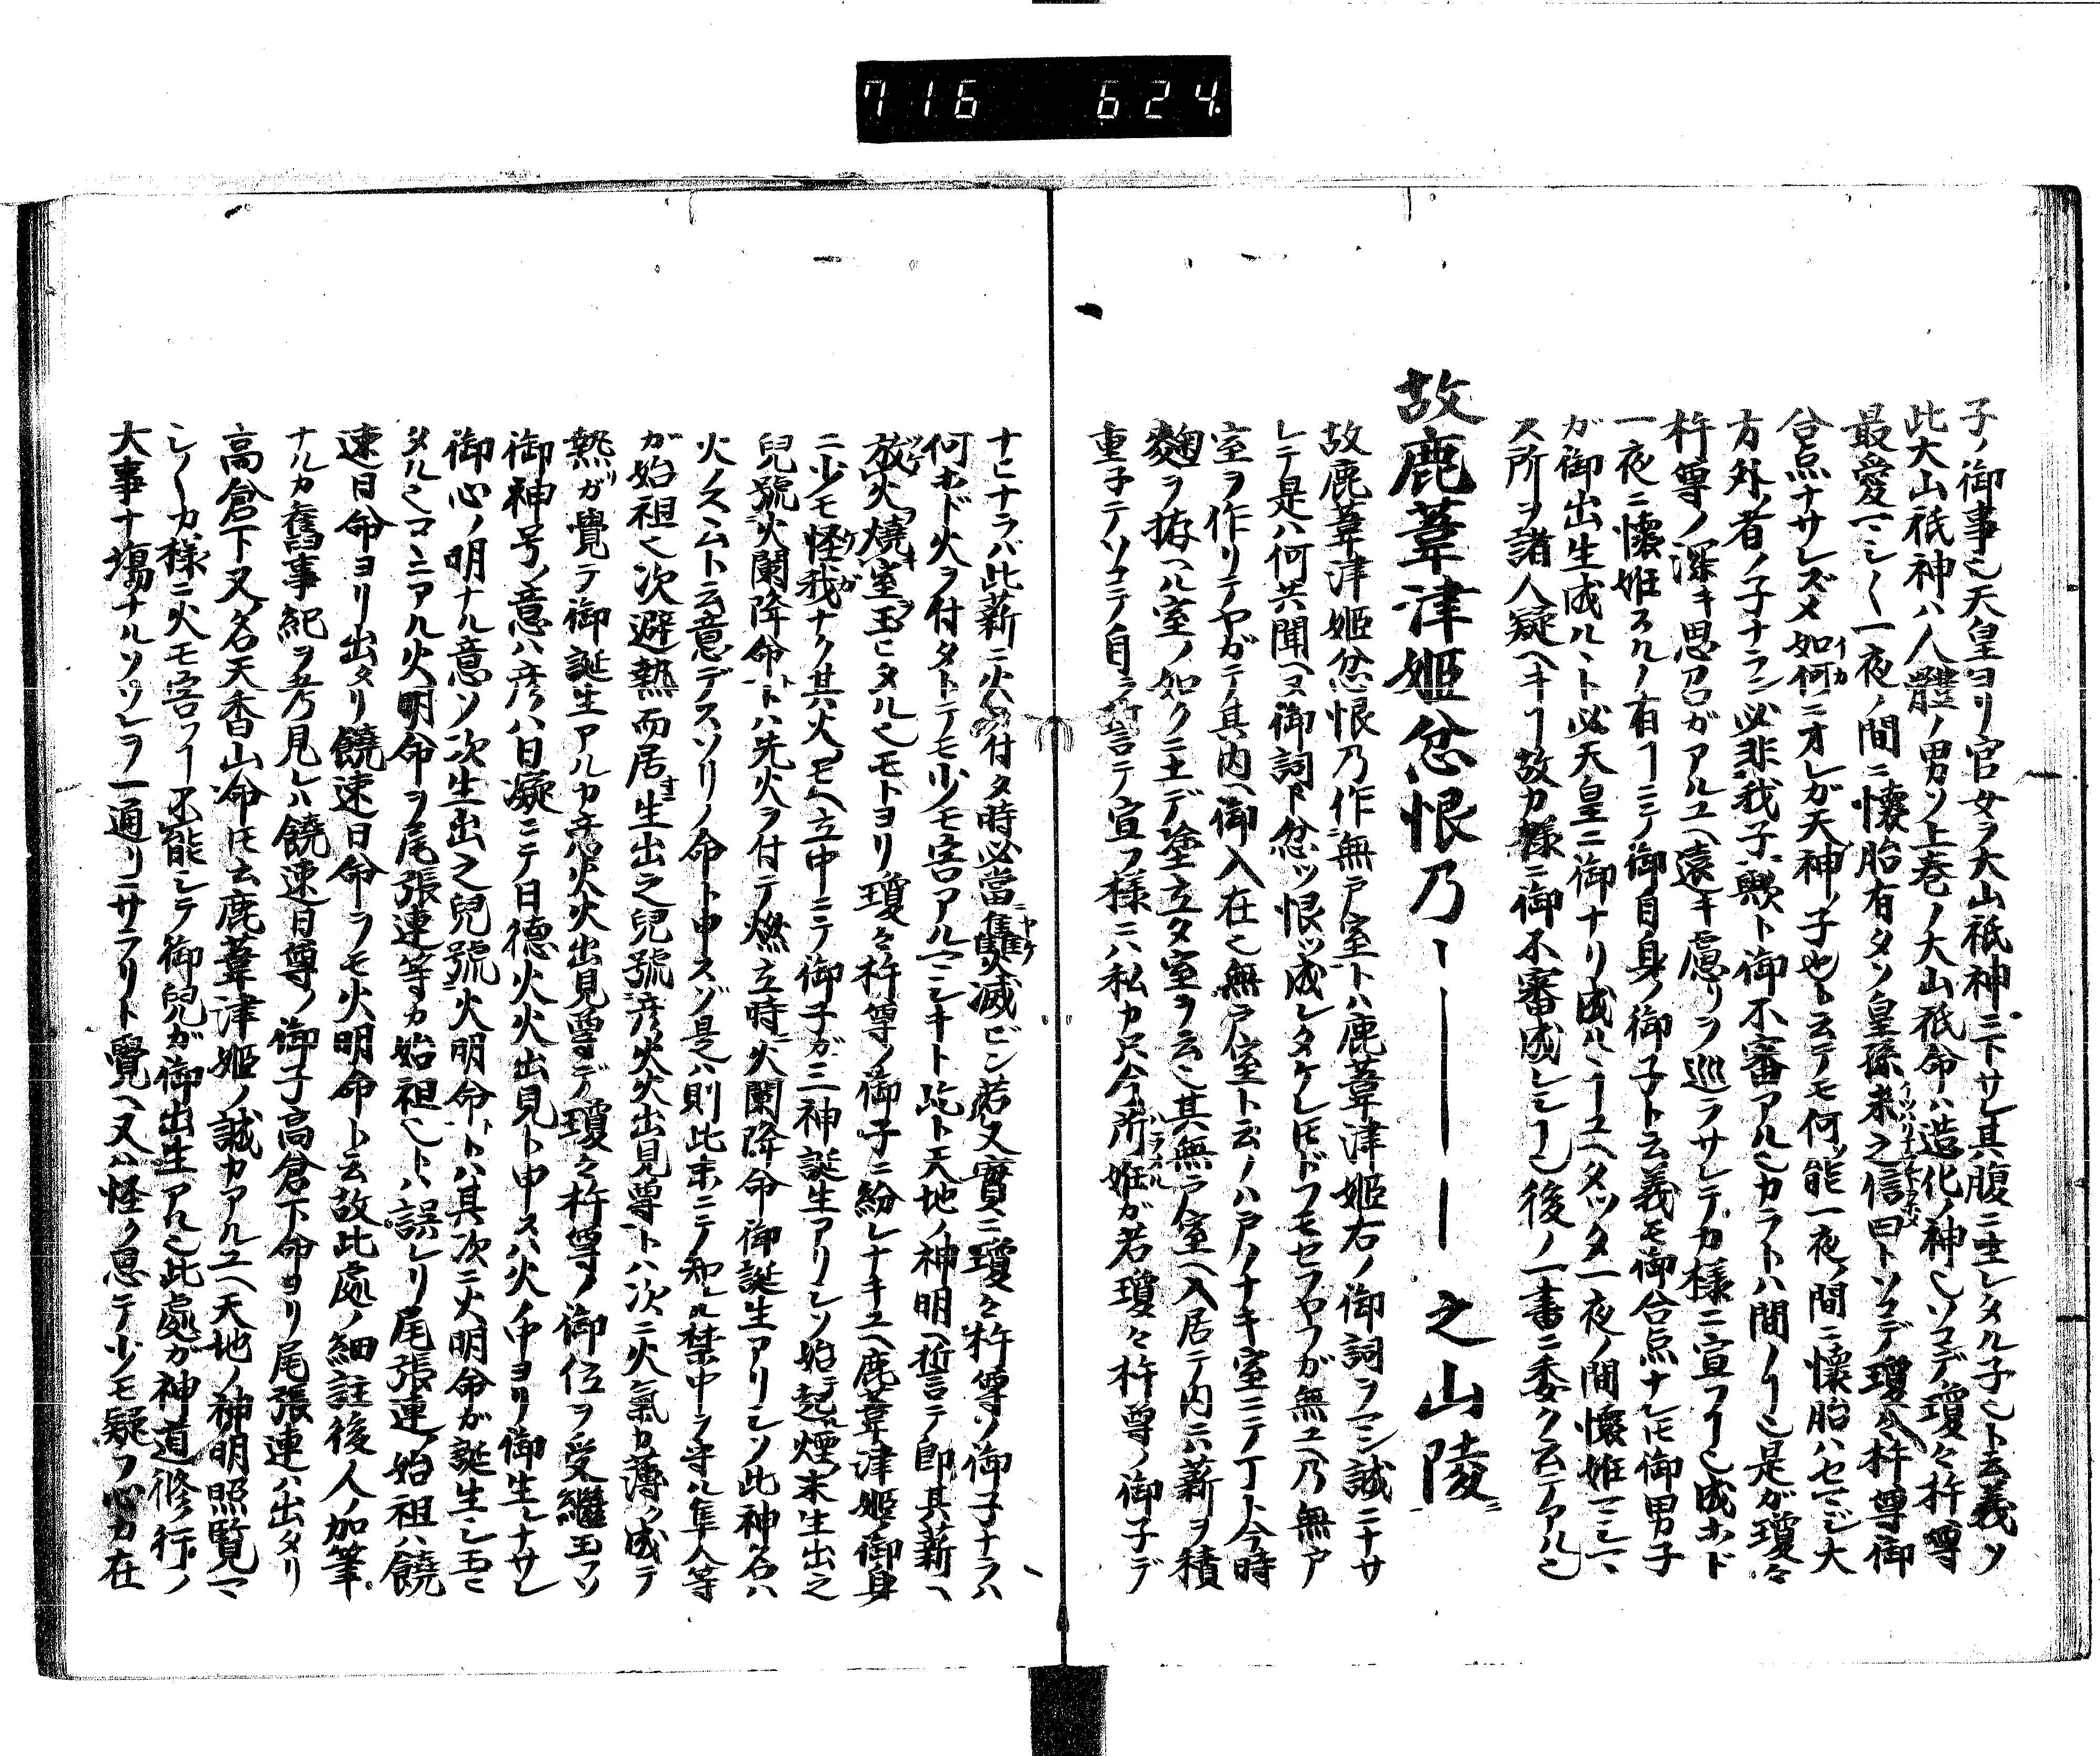 716 624
子ノ御事也天皇ヨリ官女ヲ大山祇神ニ下サレ其腹ニ生レタル子也ト云義ソ
此大山祇神ハ人體ノ男ソ上巻ノ大山祇命ハ造化ノ神也ソコデ瓊々杵尊
最愛マシ〱一夜ノ間ニ懐胎有タソ皇孫未之信曰トソコデ瓊々杵尊御
合点ナサレズメ如何ニオレガ天神ノ子也ト云テモ何ソ能一夜ノ間ニ懐胎ハセマジ大
方外ノ者ノ子ナラン必非我子歟ト御不審アル也カラトハ間ノヿ也是が瓊々
杵尊ノ深キ思召ガアルユヘ遠キ慮リヲ巡ラサレテカ様ニ宣フヿ也成ホド
一夜ニ懐妊スルノ有ヿニテ御自身ノ御子ト云義モ御合点ナレ𪜈御男子
が御出生成ルヽト必天皇ニ御ナリ成ルヽヿユヘタッタ一夜ノ間懐妊マシマ
ス所ヲ諸人疑ヘキヿ故カ様ニ御不審成レシヿ也後ノ一書ニ委ク云テアル也
故鹿葦津姫忿恨乃ーーーー之山陵
故鹿葦津姫忿恨乃作無戸室トハ鹿葦津姫右ノ御詞ヲマシ誠ニナサ
レテ是ハ何共聞ヘヌ御詞ト忿ッ恨ッ成レタケレ𪜈ドフモセフヤフガ無ユヘ乃無戸
室ヲ作リテヤガテ其内ヘ御入在也無戸室ト云ノハ戸ノナキ室ニテ丁ト今時
麹ヲ拵ヘル室ノ如クニ土デ塗立タ室ヲ云也其無戸室ヘ入居テ内ニハ薪ヲ積
重子テソコテ自ラ誓テ宣フ様ニハ私カ只今所妊ガ若瓊々杵尊ノ御子デ
ナヒナラバ此薪ニ火ヲ付タ時必當𤓪滅ビン若又實ニ瓊々杵尊ノ御子ナラハ
何ホド火ヲ付タトテモ少モ害アルマシキト此ト天地ノ神明ヘ誓テ即其薪ヘ
放火燒室玉ヒタル也モトヨリ瓊々杵尊ノ御子ニ紛レナキユヘ鹿葦津姫ノ御身
ニ少モ怪我ナク其火ノモヘ立中ニテ御子ガ三神誕生アリシソ始起煙末生出之
兒號火闌降命トハ先火ヲ付テ燃立時ニ火闌降命御誕生アリシソ此神名ハ
火ノスヽムト云意デスソリノ命ト申スゾ是ハ則此末ニテ知ルヽ禁中ヲ守ル隼人等
が始祖也次避熱而居生出之兒號彦火火出見尊トハ次ニ火氣カ薄ッ成テ
熱リガ覺テ御誕生アルカ彦火火出見尊デ瓊々杵尊ノ御位ヲ受繼玉フソ
御神号ノ意ハ彦ハ日凝ニテ日徳火火出見ト申スハ火ノ中ヨリ御生レナサレ
御心ノ明ナル意ソ次生出之兒號火明命トハ其次ニ火明命ガ誕生シ玉ヒ
タル也コヽニアル火明命ヲ尾張連等カ始祖也トハ誤レリ尾張連ノ始祖ハ饒
速日命ヨリ出タリ饒速日命ヲモ火明命ト云故此處ノ細註後人ノ加筆
ナルカ舊事紀ヲ考見レハ饒速日尊ノ御子高倉下命ヨリ尾張連ハ出タリ
高倉下又ノ名天香山命𪜈云鹿葦津姫ノ誠カアルユヘ天地ノ神明照覧マ
シ〱カ様ニ火モ害フヿ不能シテ御兒ガ御出生アル也此處カ神道修行ノ
大事ナ塲ナルソソレヲ一通リニサラリト覺ヘ又ハ怪ク息テ少ノモ疑フ心カ在